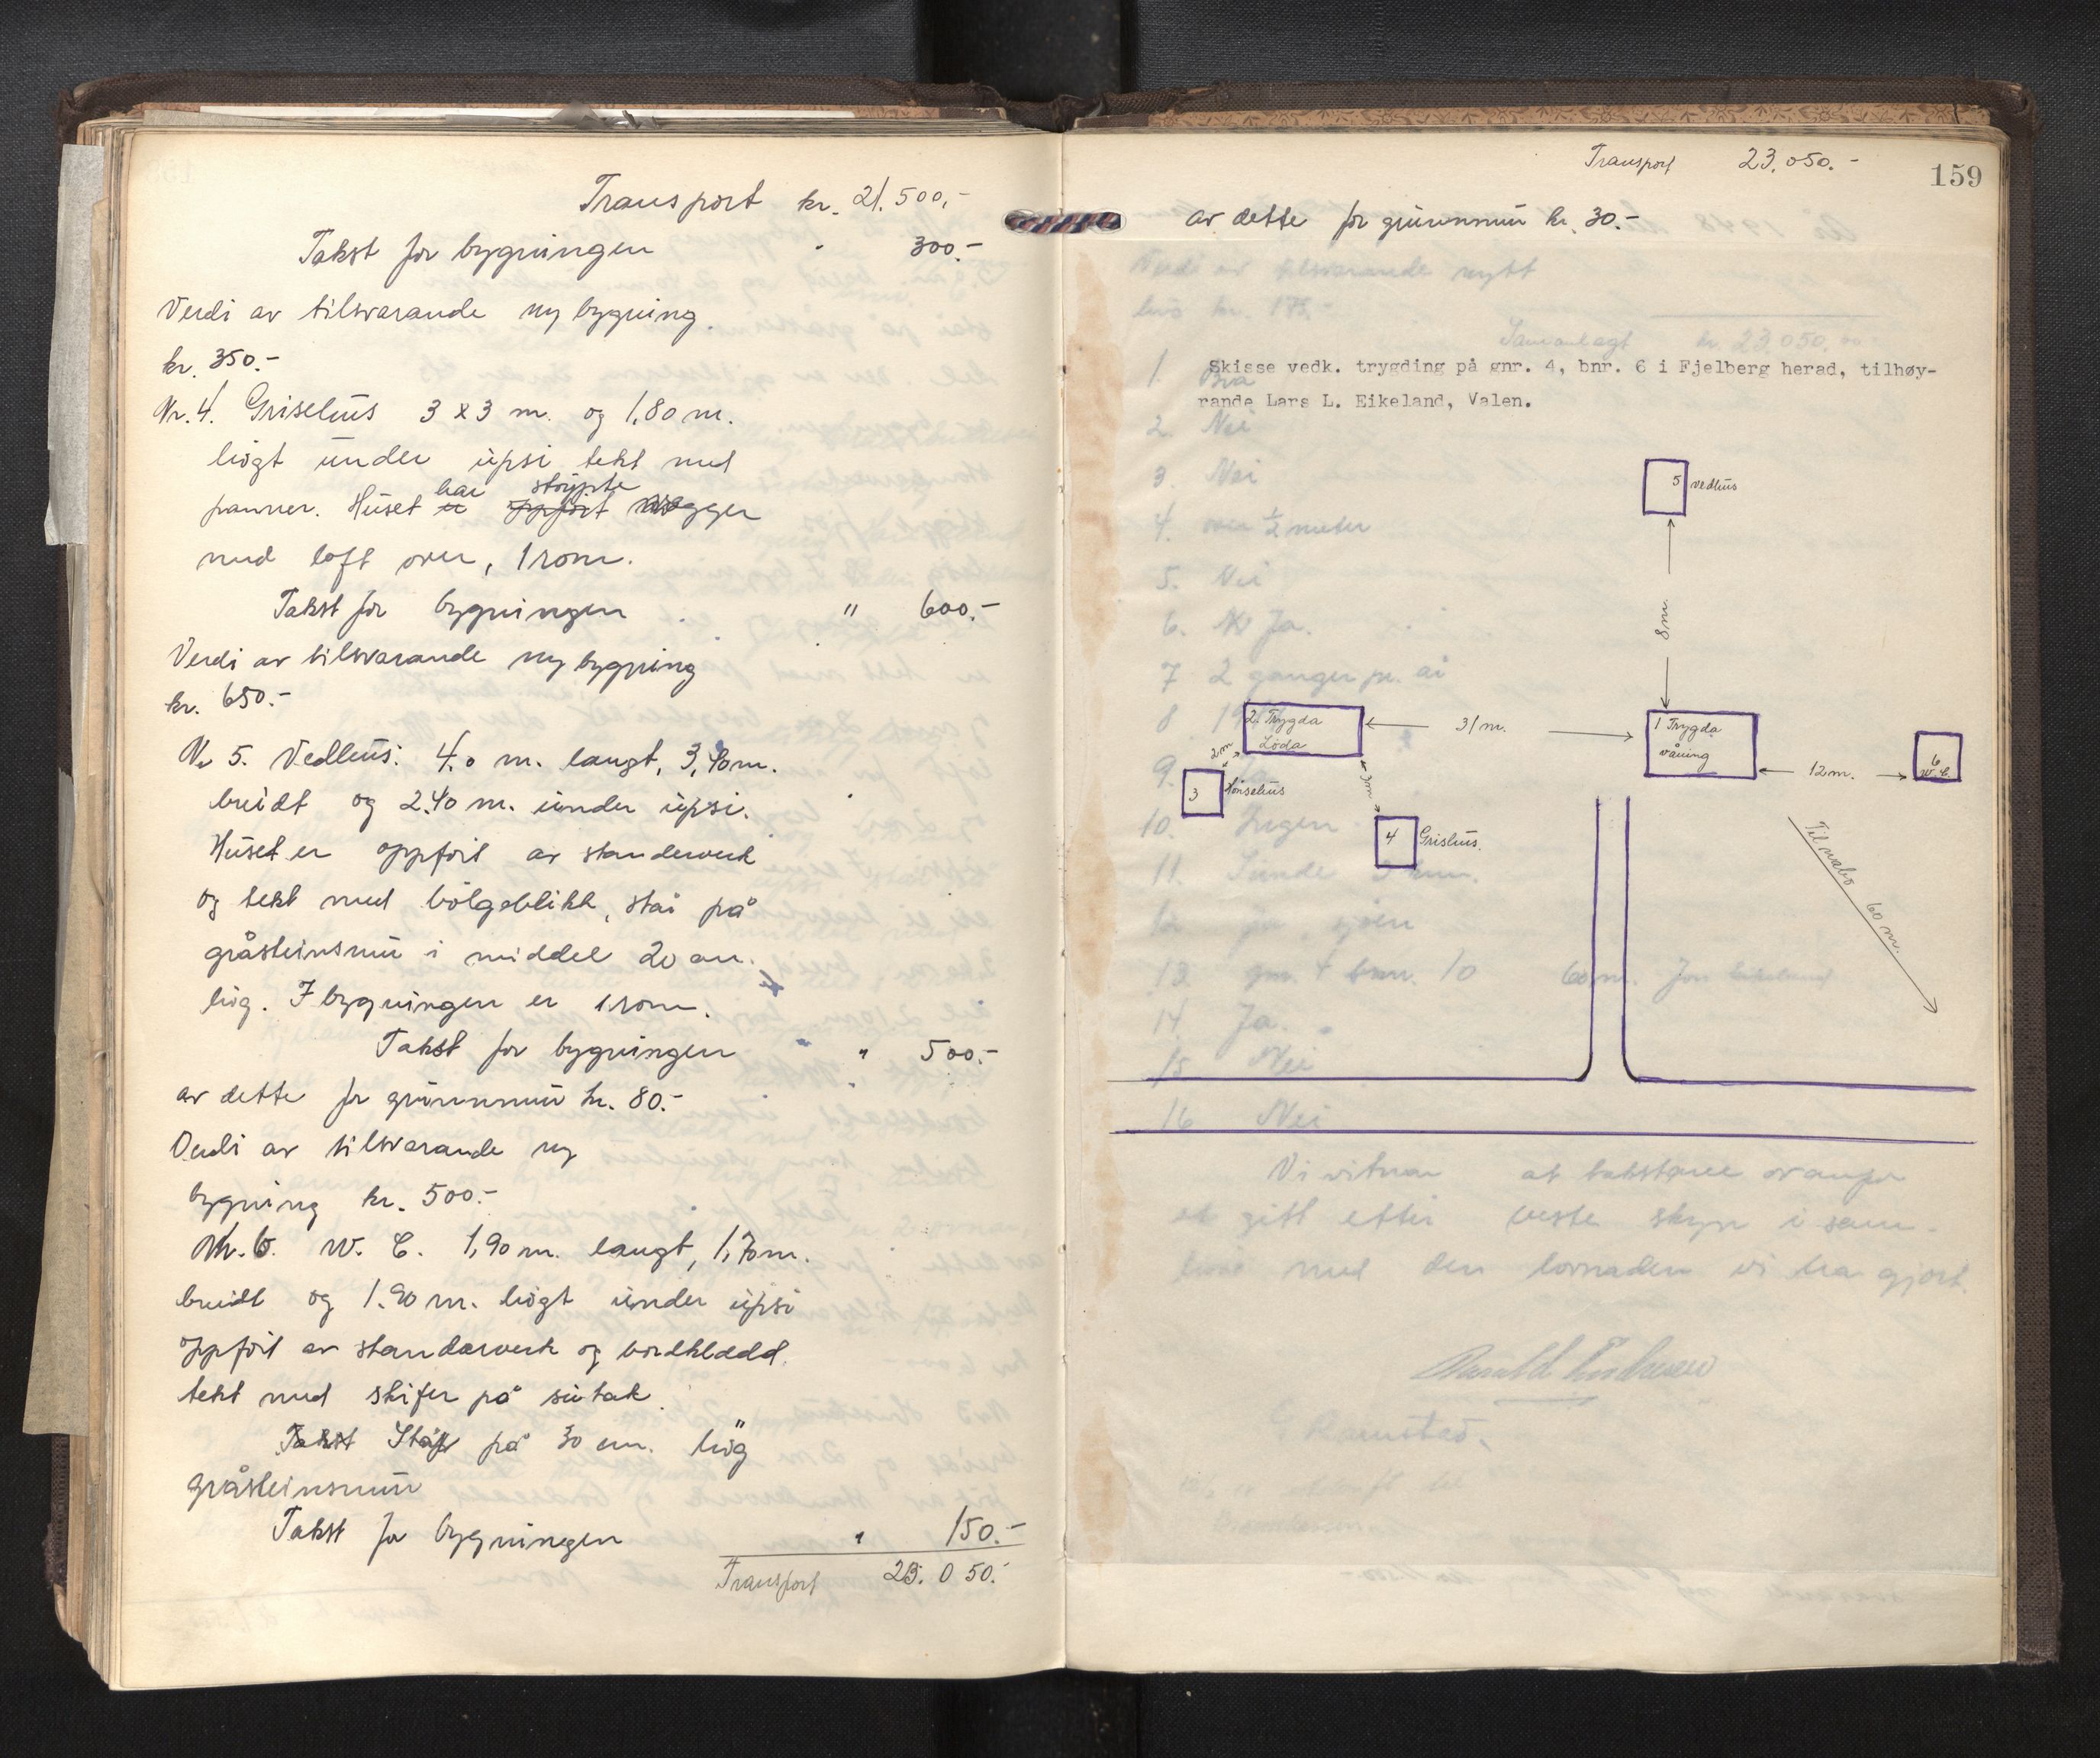 Transport kr. 21.500,-
Takst for bygningen " 300.-
Verdi av tilsvarande ny bygning.
kr. 350.-
Nr. 4. Grisehus 3 x 3 m. og 1,80 m.
högt under upsi tekt med
har støypte
panner. Huset er oppfört vegger
med loft over, 1 rom.
Takst for bygningen " 600.-
Verdi av tilsvarande ny bygning
kr. 650.-
Nr 5. Vedhus: 4.0 m. langt, 3,40 m.
breidt og 2.40 m. under upsi.
Huset er oppfört av standerverk
og tekt med bölgeblikk, står på
gråsteinsmur i middel 20 cm.
hög. I bygningen er 1 rom.
Takst for bygningen " 500.-
av dette for grunnmur kr. 80.-
Verdi av tilsvarande ny
bygning kr. 500.-
Nr. 6. W. C. 1,90 m. langt, 1,70 m.
breidt og 1.90 m. högt under upsi
oppfört av standerverk og bordkledd.
tekt med skifer på sutak.
Takst Står på 30 cm. hög
gråsteinsmur
Takst for bygningen " 150.-
Transport 23.050.-
Transport 23.050.-
159
av dette for grunnmur kr. 30.-
Verdi av tilsvarande nytt
hus kr. 175.-
Samanlagt kr. 23.050.00
Skisse vedk. trygding på gnr. 4, bnr. 6 i Fjelberg herad, tilhøy-
rande Lars L. Eikeland, Valen.
1. Bra
2. Nei
3. Nei
4. over 1/2 meter
5. Nei
6. Ja.
7 2 ganger pr. år
8
9.
10. Ingen
11. Sunde 5 km.
sjöen
13 gnr. 4 bnr. 10 60 m. Jon Eikeland
14 Ja.
15 Nei
16 Nei
5 vedhus
8 m.
2. Trygda
Löda
31 m.
1 Trygda
våning
12 m.
6
W.C.
2 m
3 Hönsehus
4 Grishus.
Til nabo 60 m.
Vi vitnar at takstane ovanfor
er gitt etter beste skyn i sam-
med den lovnaden vi har gjort.